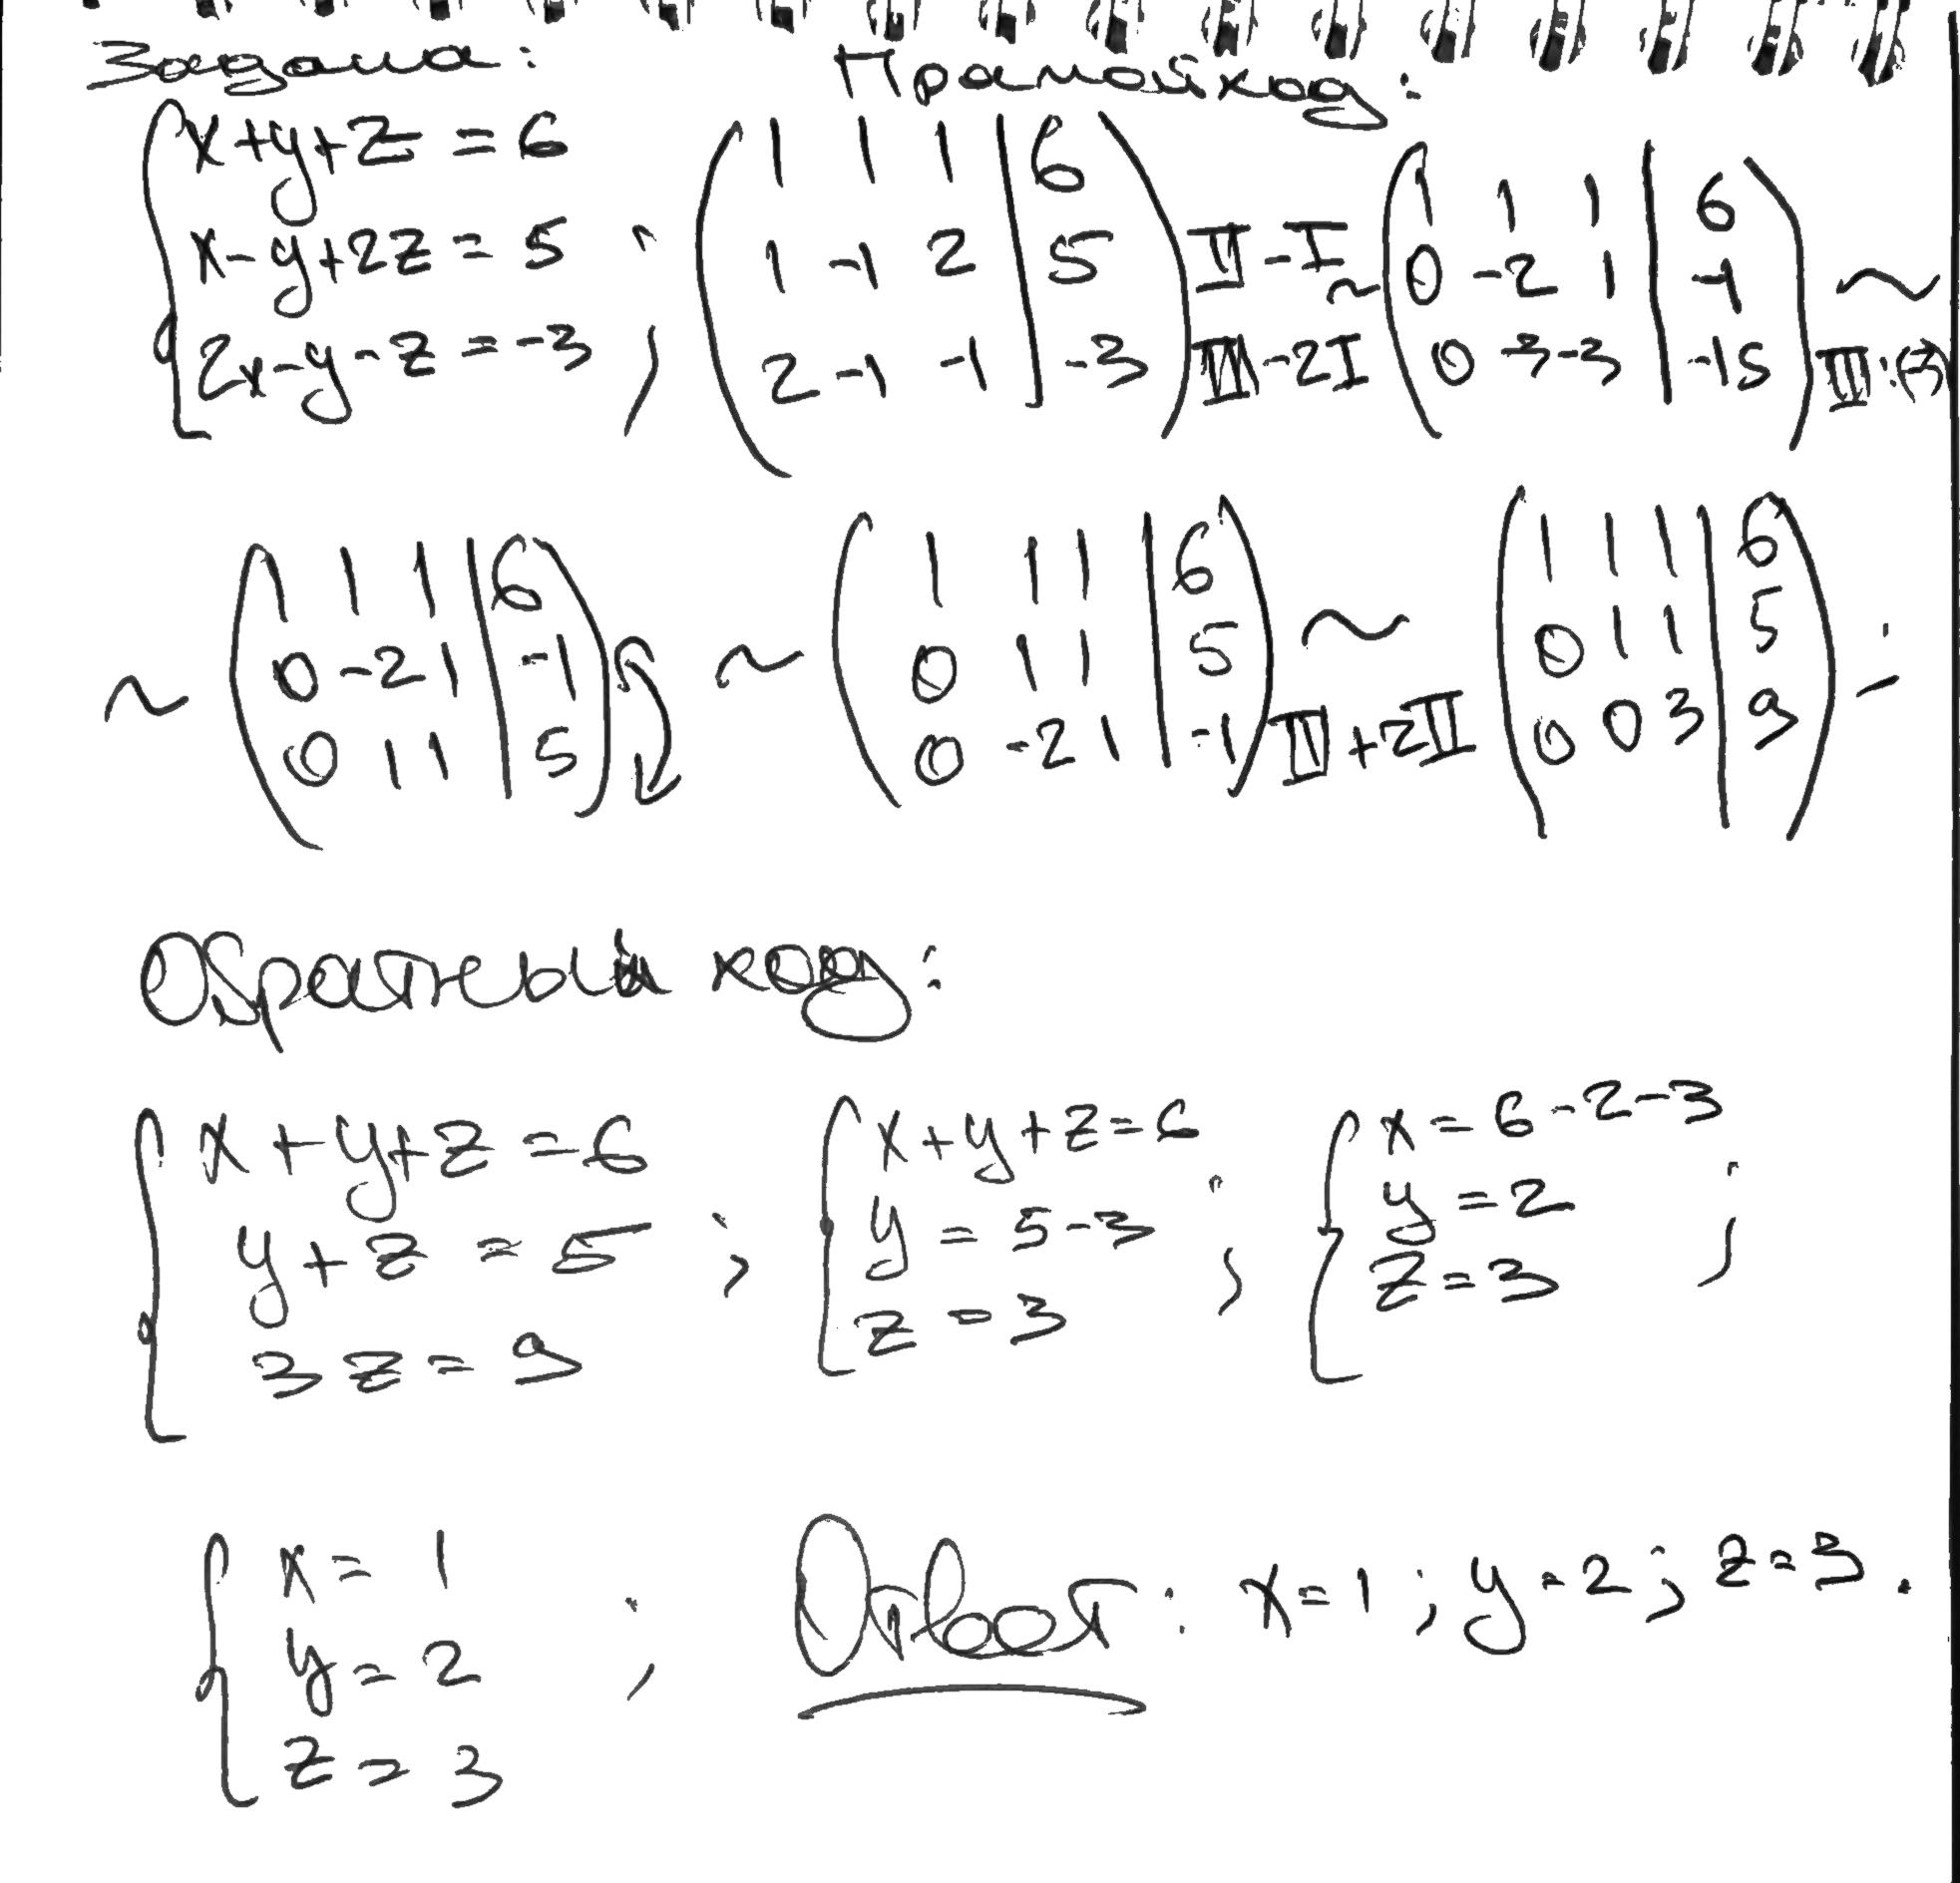 Задача: Прямой ход:
{ x+y+z = 6
x-y+2z = 5
2x-y-z = -3 ;
( 1 1 1 | 6
1 -1 2 | 5
2 -1 -1 | -3 ) II-I III-2I ~
( 1 1 1 | 6
0 -2 1 | -1
0 -3 -3 | -15 ) ~ III:(-3)
~ ( 1 1 1 | 6
0 -2 1 | -1
0 1 1 | 5 )
~ ( 1 1 1 | 6
0 1 1 | 5
0 -2 1 | -1 ) ~ III+2II
( 1 1 1 | 6
0 1 1 | 5
0 0 3 | 9 ) ;
Обратный ход:
{ x+y+z = 6
y+z = 5
3z = 9 ;
{ x+y+z=6
y = 5-3
z = 3 ;
{ x = 6-2-3
y = 2
z = 3 ;
{ x = 1
y = 2
z = 3 ;
Ответ: x=1; y=2; z=3.